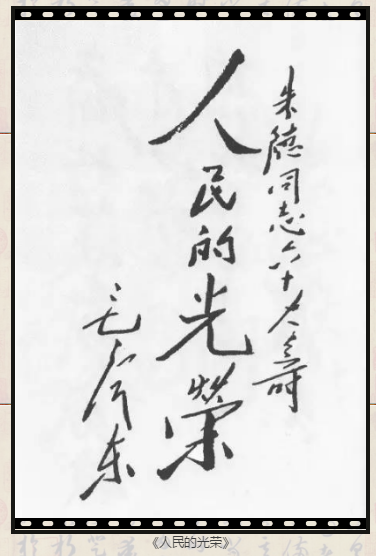 朱德同志六十大寿
人民的光榮
毛泽东
《人民的光荣》